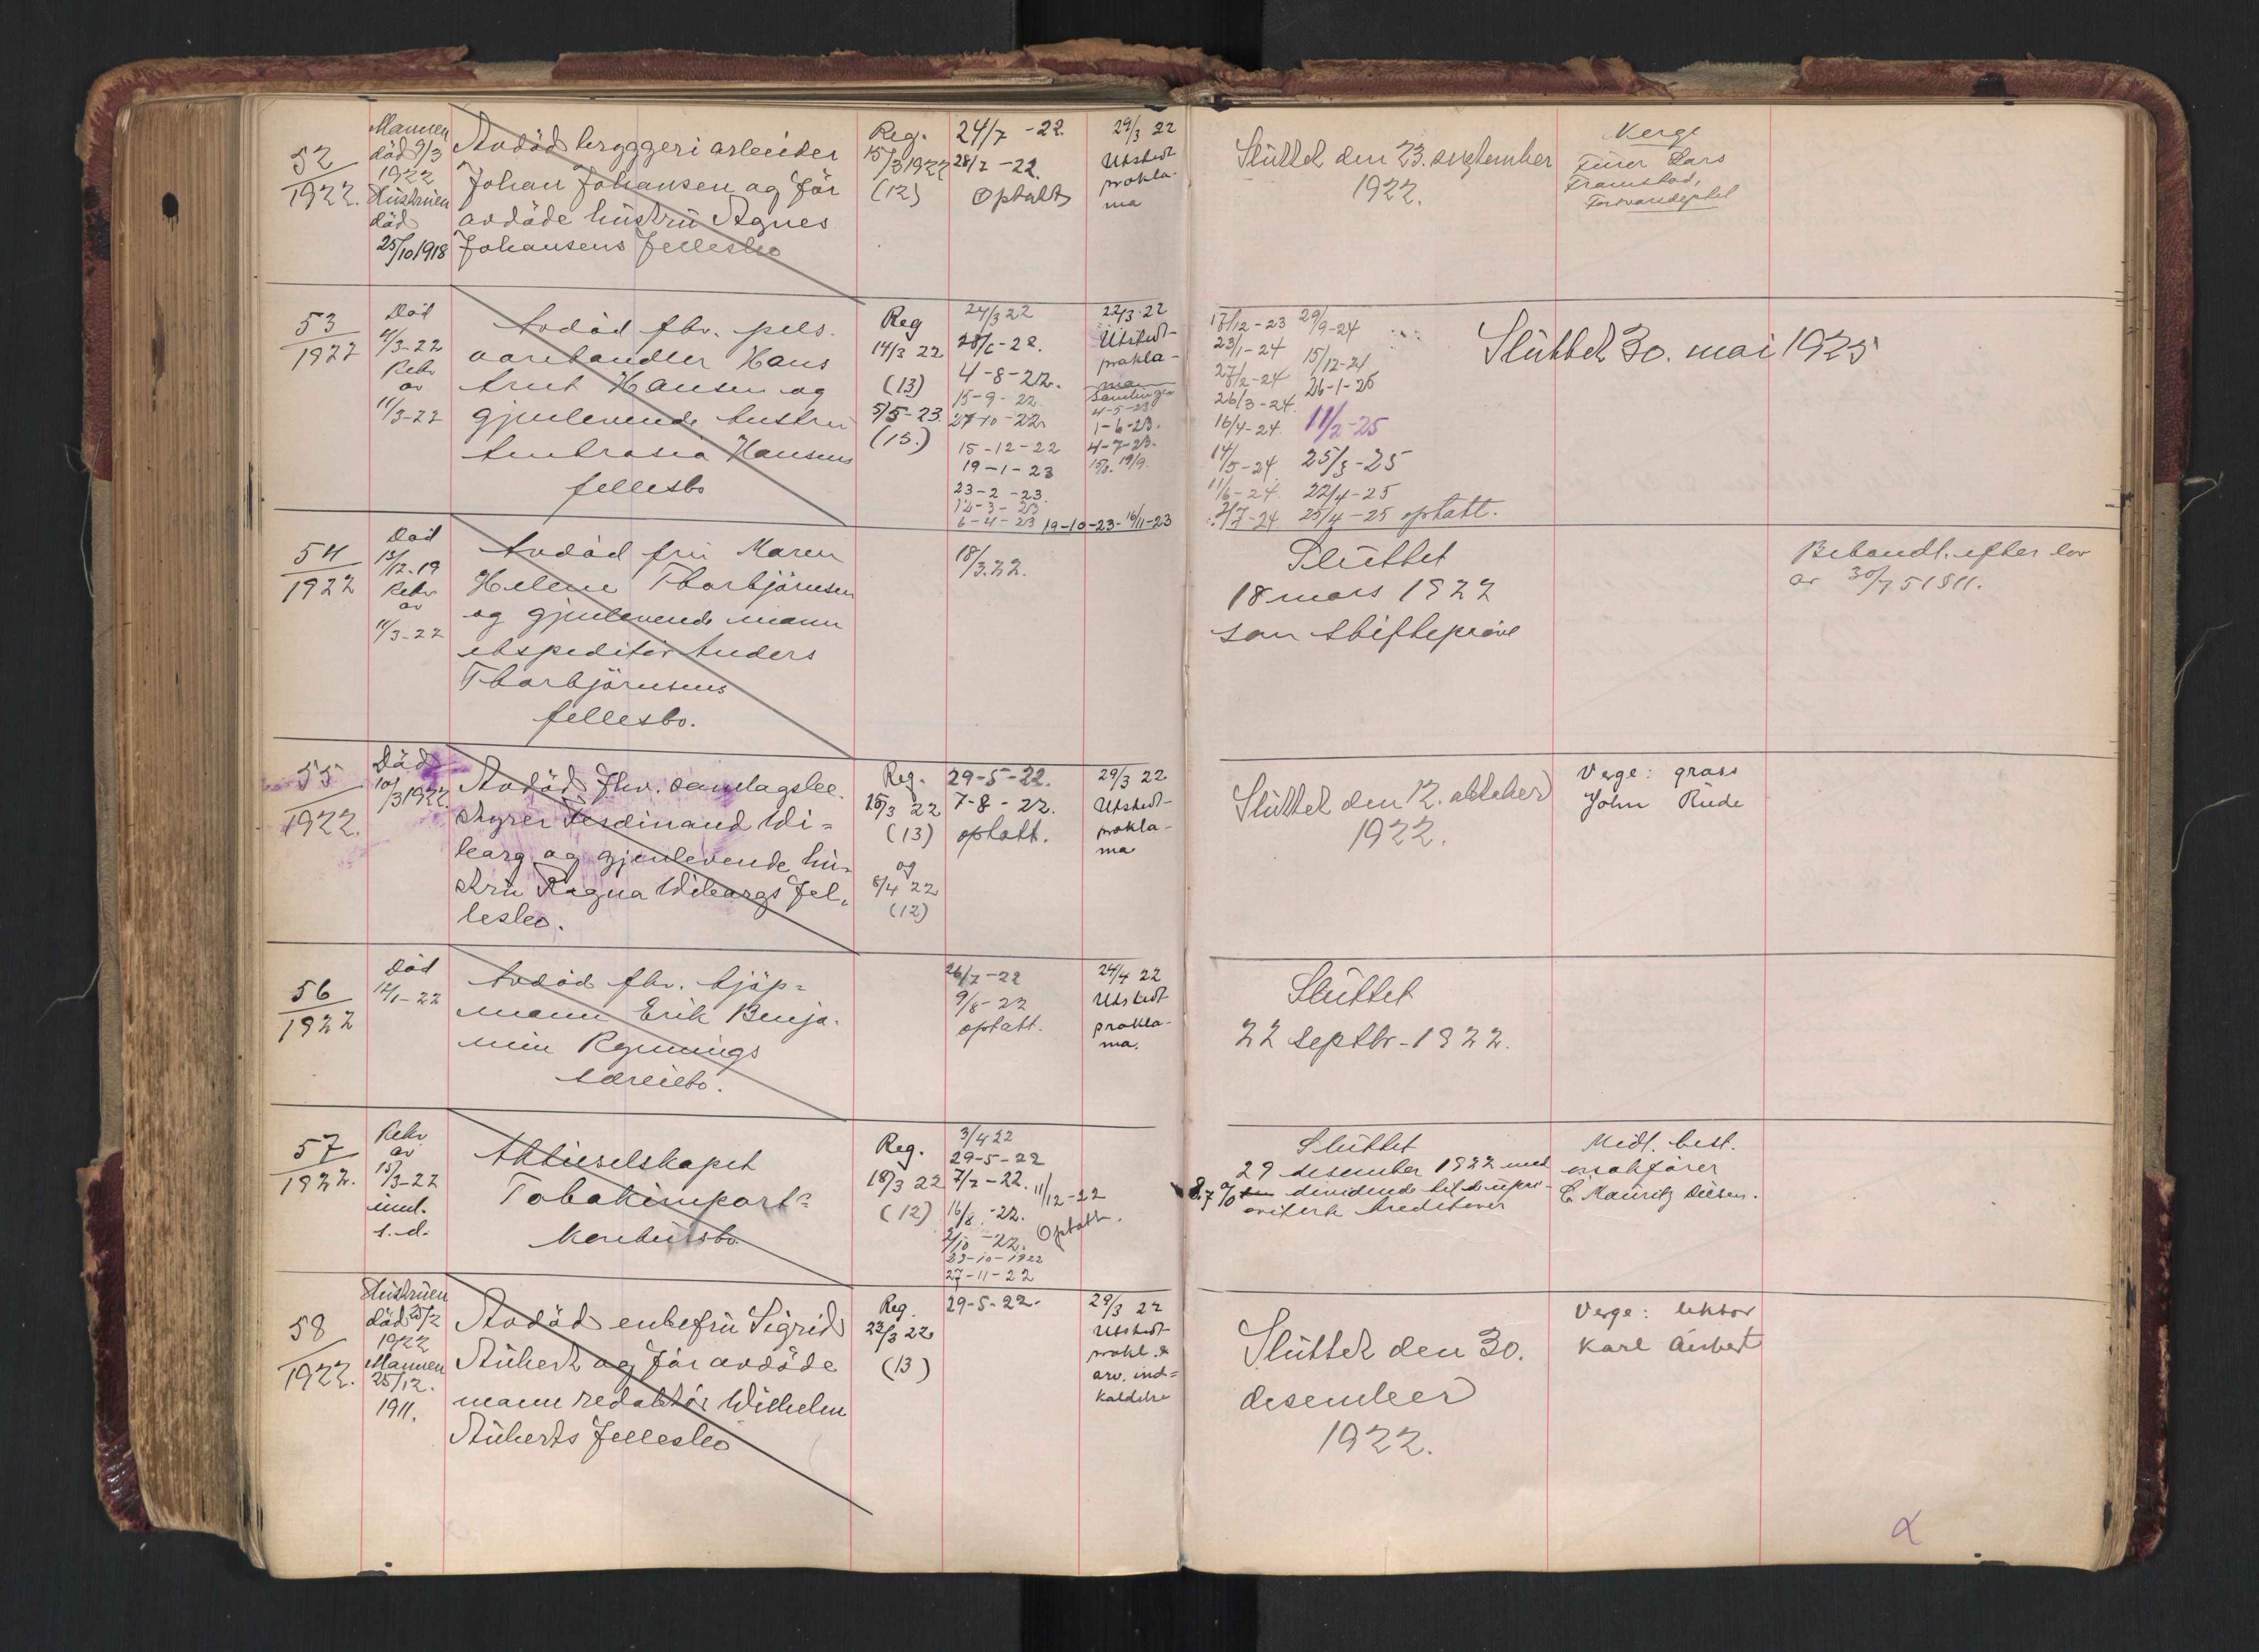 52
1922.
Mannen
död 9/3
1922
Hustruen
död
25/10 1918
Avdöd bryggeriarbeider
Johan Johansen og för
avdöde hustru Agnes
Johansens fellesbo
Reg.
15/3 1922
(12)
24/7 -22.
28/7 -22.
Optatt
29/3 22
Utstedt
prokla-
ma
Sluttet den 23. september
1922.
Verge
Lars
53
1922
Död
4/3-22
Rekv
av
11/3-22
Avdöd fhv. pels-
varehandler Hans
Arnt Hansen og
gjenlevende hustru
Ambrosia Hansens
fellesbo
Reg
14/3 22
(13)
5/5-23.
(13.)
24/3 22
28/6-22.
4-8-22.
15-9-22.
27-10-22
15-12-22
19-1-23
23-2-23.
6-4-23 19-10-23- 16/11-23
22/3-22
Utstedt-
prokla-
ma
Samlinger
4-5-23
1-6-23.
4-7-23.
15/8. 19/9.
17/12-23 29/9-24
23/1-24 15/12-24
27/2-24 26-1-25
26/3-24.
16/4-24. 11/2-25
14/5-24. 25/3-25
11/6-24. 22/4-25
2/7-24 25/4-25 optatt.
Sluttet 30. mai 1925
54
1922
Död
13/12-19
Rekv
av
11/3-22
Avdöd fru Maren
Helene Thorbjörnsen
og gjenlevende mann
ekspeditör Anders
Thorbjörnsens
fellesbo.
18/3.22.
Sluttet
18 mars 1922
som skiftepröve
Behandl. efter lov
av 30/7 1851 §11.
55
1922.
Död
10/3 1922.
Avdöd fhv. samlagsbe-
styrer Ferdinand Wi-
berg og gjenlevende hu-
stru Ragna Wibergs fel-
lesbo.
Reg.
15/3 22
(13)
og
5/4 22
(12)
29-5-22.
7-8-22.
optatt.
29/3 22
Utstedt-
prokla-
ma
Sluttet den 12. oktober
1922.
Verge: gross
John Rude
56
1922
Död
12/1-22
Avdöd fhv. kjöp-
mann Erik Benja-
min Rynnings
særeiebo.
26/7-22
9/8-22
optatt.
24/4 22
Utstedt
prokla-
ma.
Sluttet
22 septbr-1922.
57
1922.
Rekv
av
15/3-22
innl.
s.d.
Aktieselskapet
Tobakimports
konkursbo.
Reg.
18/3 22
(12)
3/4 22
29-5-22
7/7-22. 11/12-22
16/8.-22. Optatt.
2/10-22.
23-10-1922
27-11-22
Sluttet
29 desember 1922 med
8.7 % dividende til de upri-
viterte kreditorer
Midl. best.
o.r.sakförer
C. Mauritz Olsen.
58
1922.
Hustruen
död 25/2
1922
Mannen
25/12.
1911.
Avdöd enkefru Sigrid
Aubert og för avdöde
mann redaktör Wilhelm
Auberts fellesbo
Reg.
22/3 22
(13)
29-5-22.
29/3 22
Utstedt
prokl. &
arv. ind-
kaldelse
Sluttet den 30.
desember
1922.
Verge: lektor
Karl Aubert